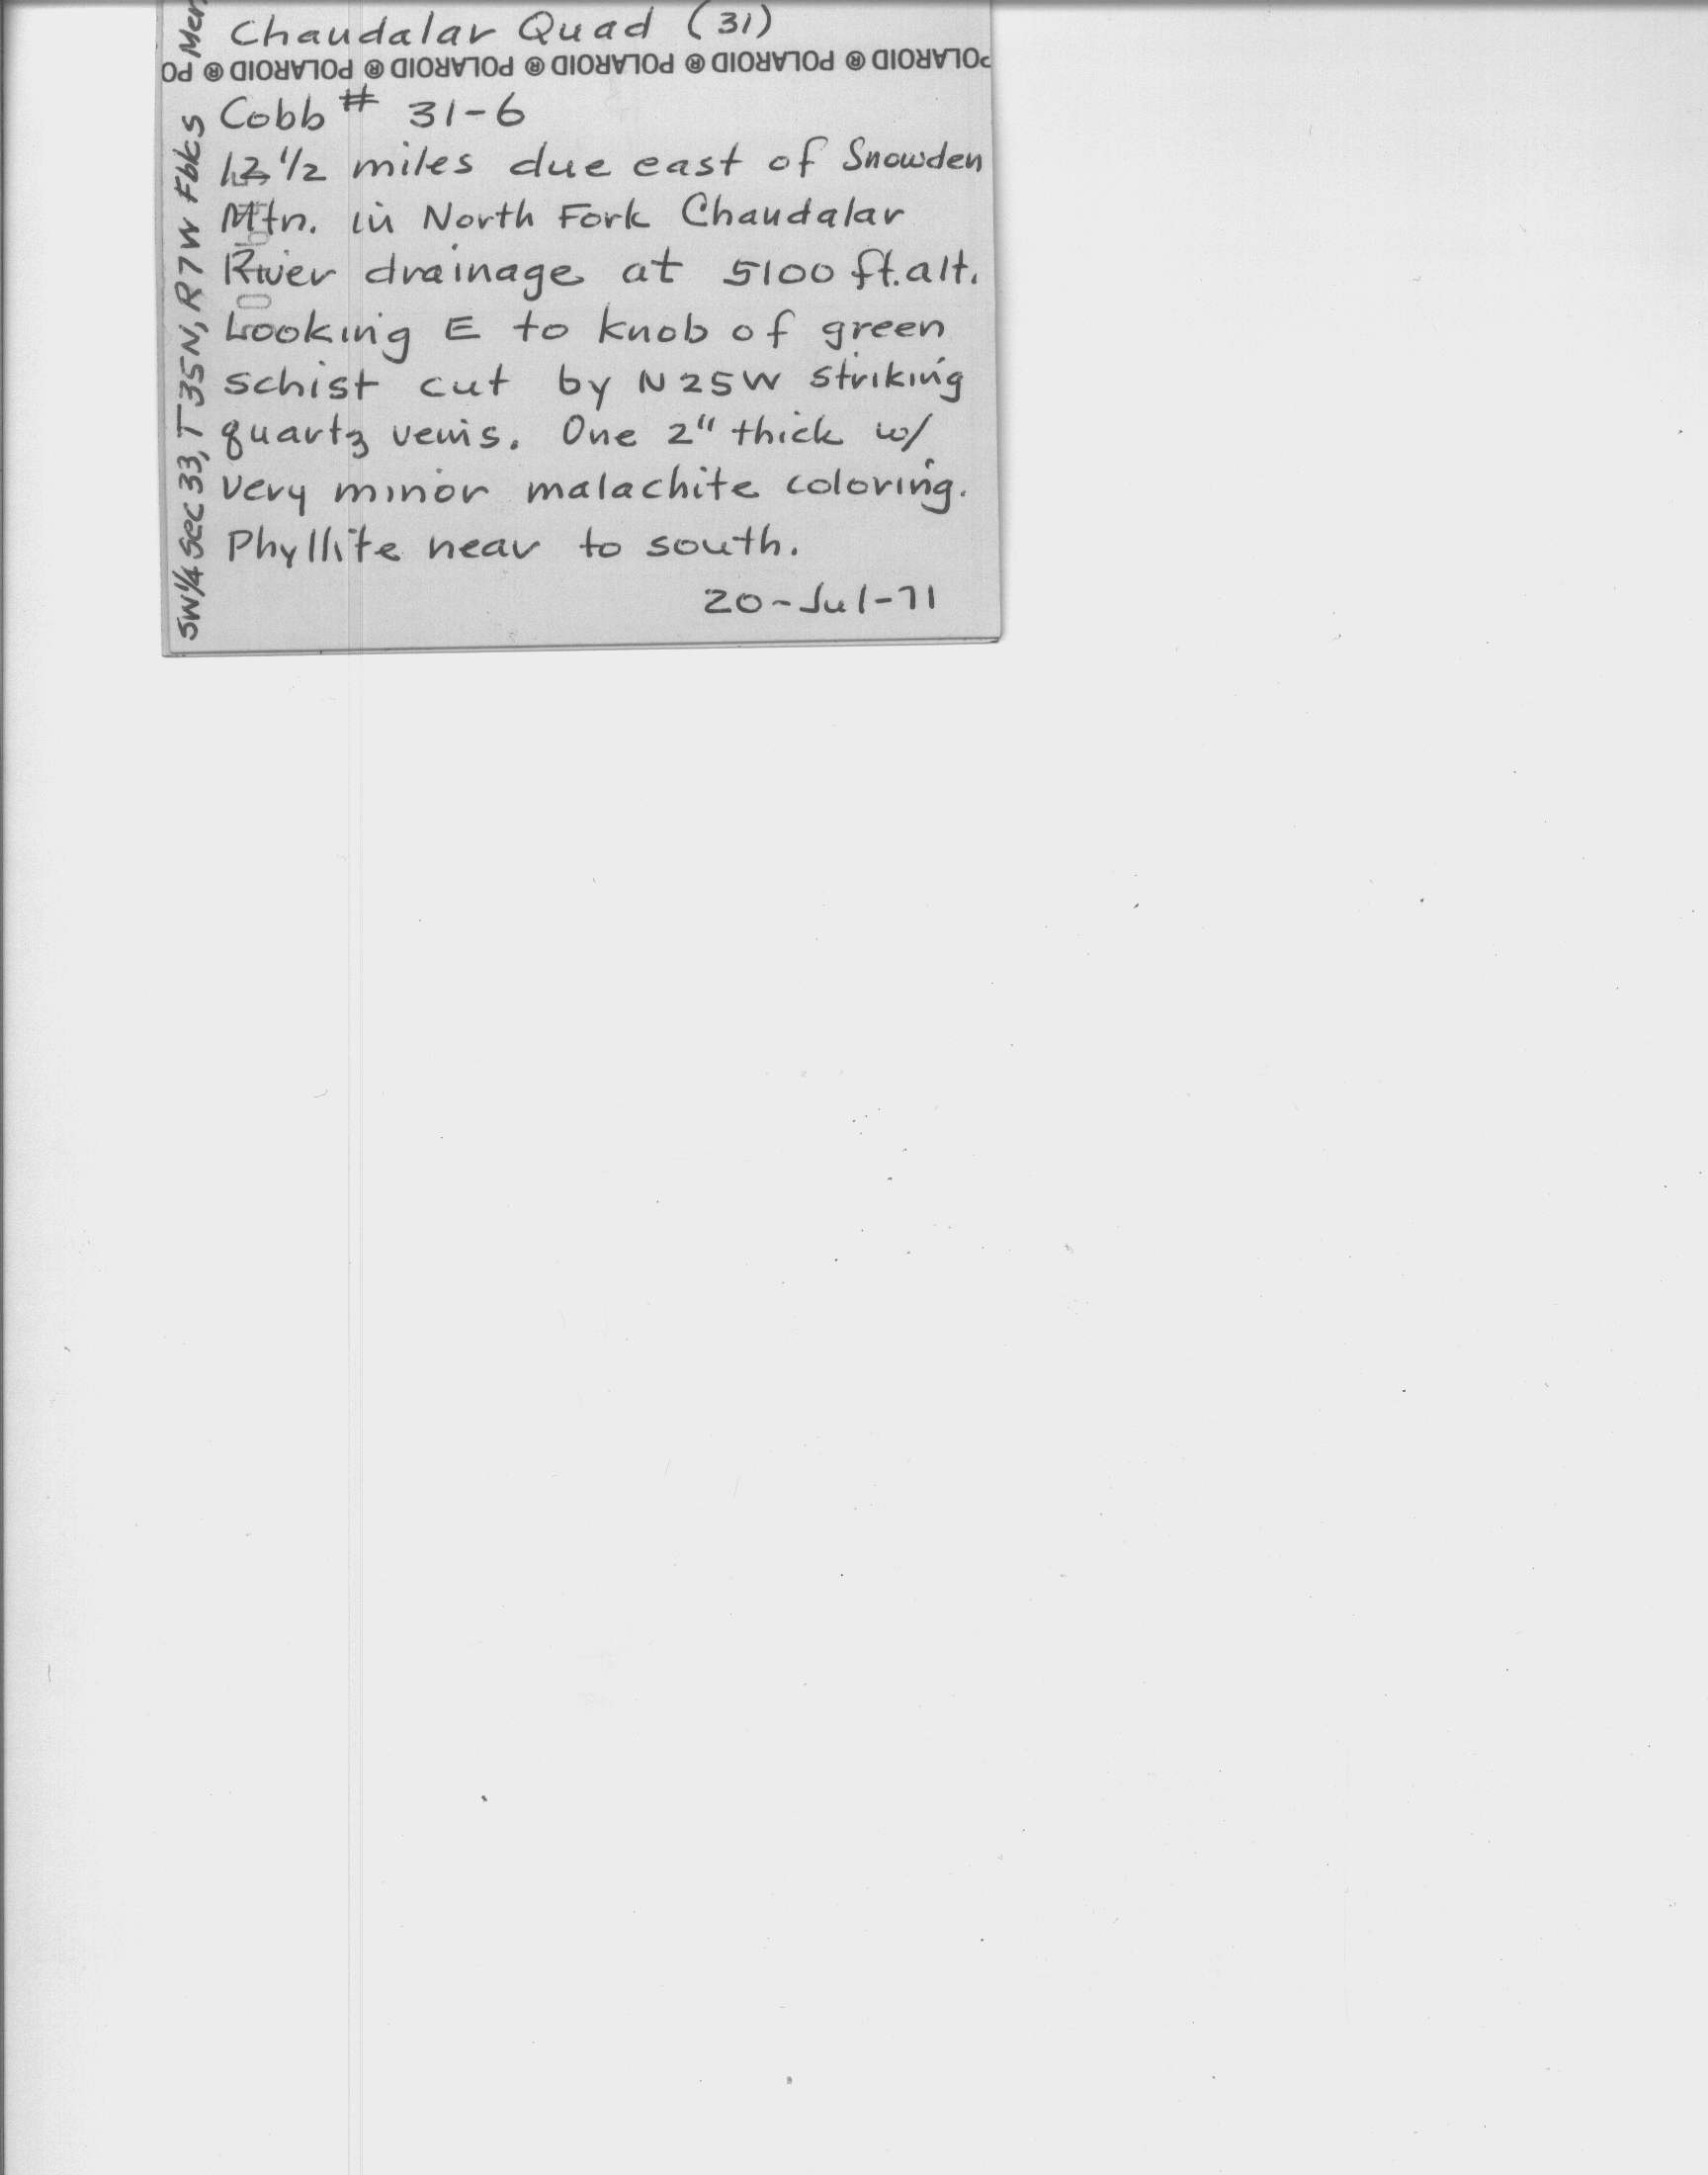 Chandalar Quad (31)
POLAROID ® POLAROID ® POLAROID ® POLAROID ® POLAROID ® PO
Cobb # 31-6
12 1/2 miles due east of Snowden
Mtn. in North Fork Chandalar
River drainage at 5100 ft. alt.
Looking E to knob of green
schist cut by N25W striking
quartz veins. One 2" thick w/
very minor malachite coloring.
Phyllite near to south.
20-Jul-71
SW 1/4 Sec 33, T35N, R7W Fbks Mer.